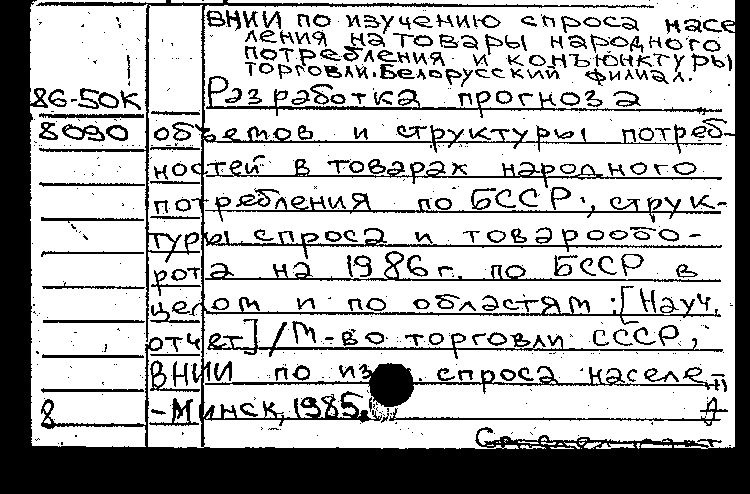 ВНИИ по изучению спроса насе
ления на товары народного
потребления и конъюнктуры
торговли. Белорусский филиал.
86-50К Разработка прогноза
8090 объемов и структуры потреб-
ностей в товарах народного
потребления по БССР, струк-
туры спроса и товарообо-
рота на 1986 г. по БССР в
целом и по областям :[Науч.
отчет] / М-во торговли СССР,
ВНИИ по из. спроса населе
8 -Минск, 1985.